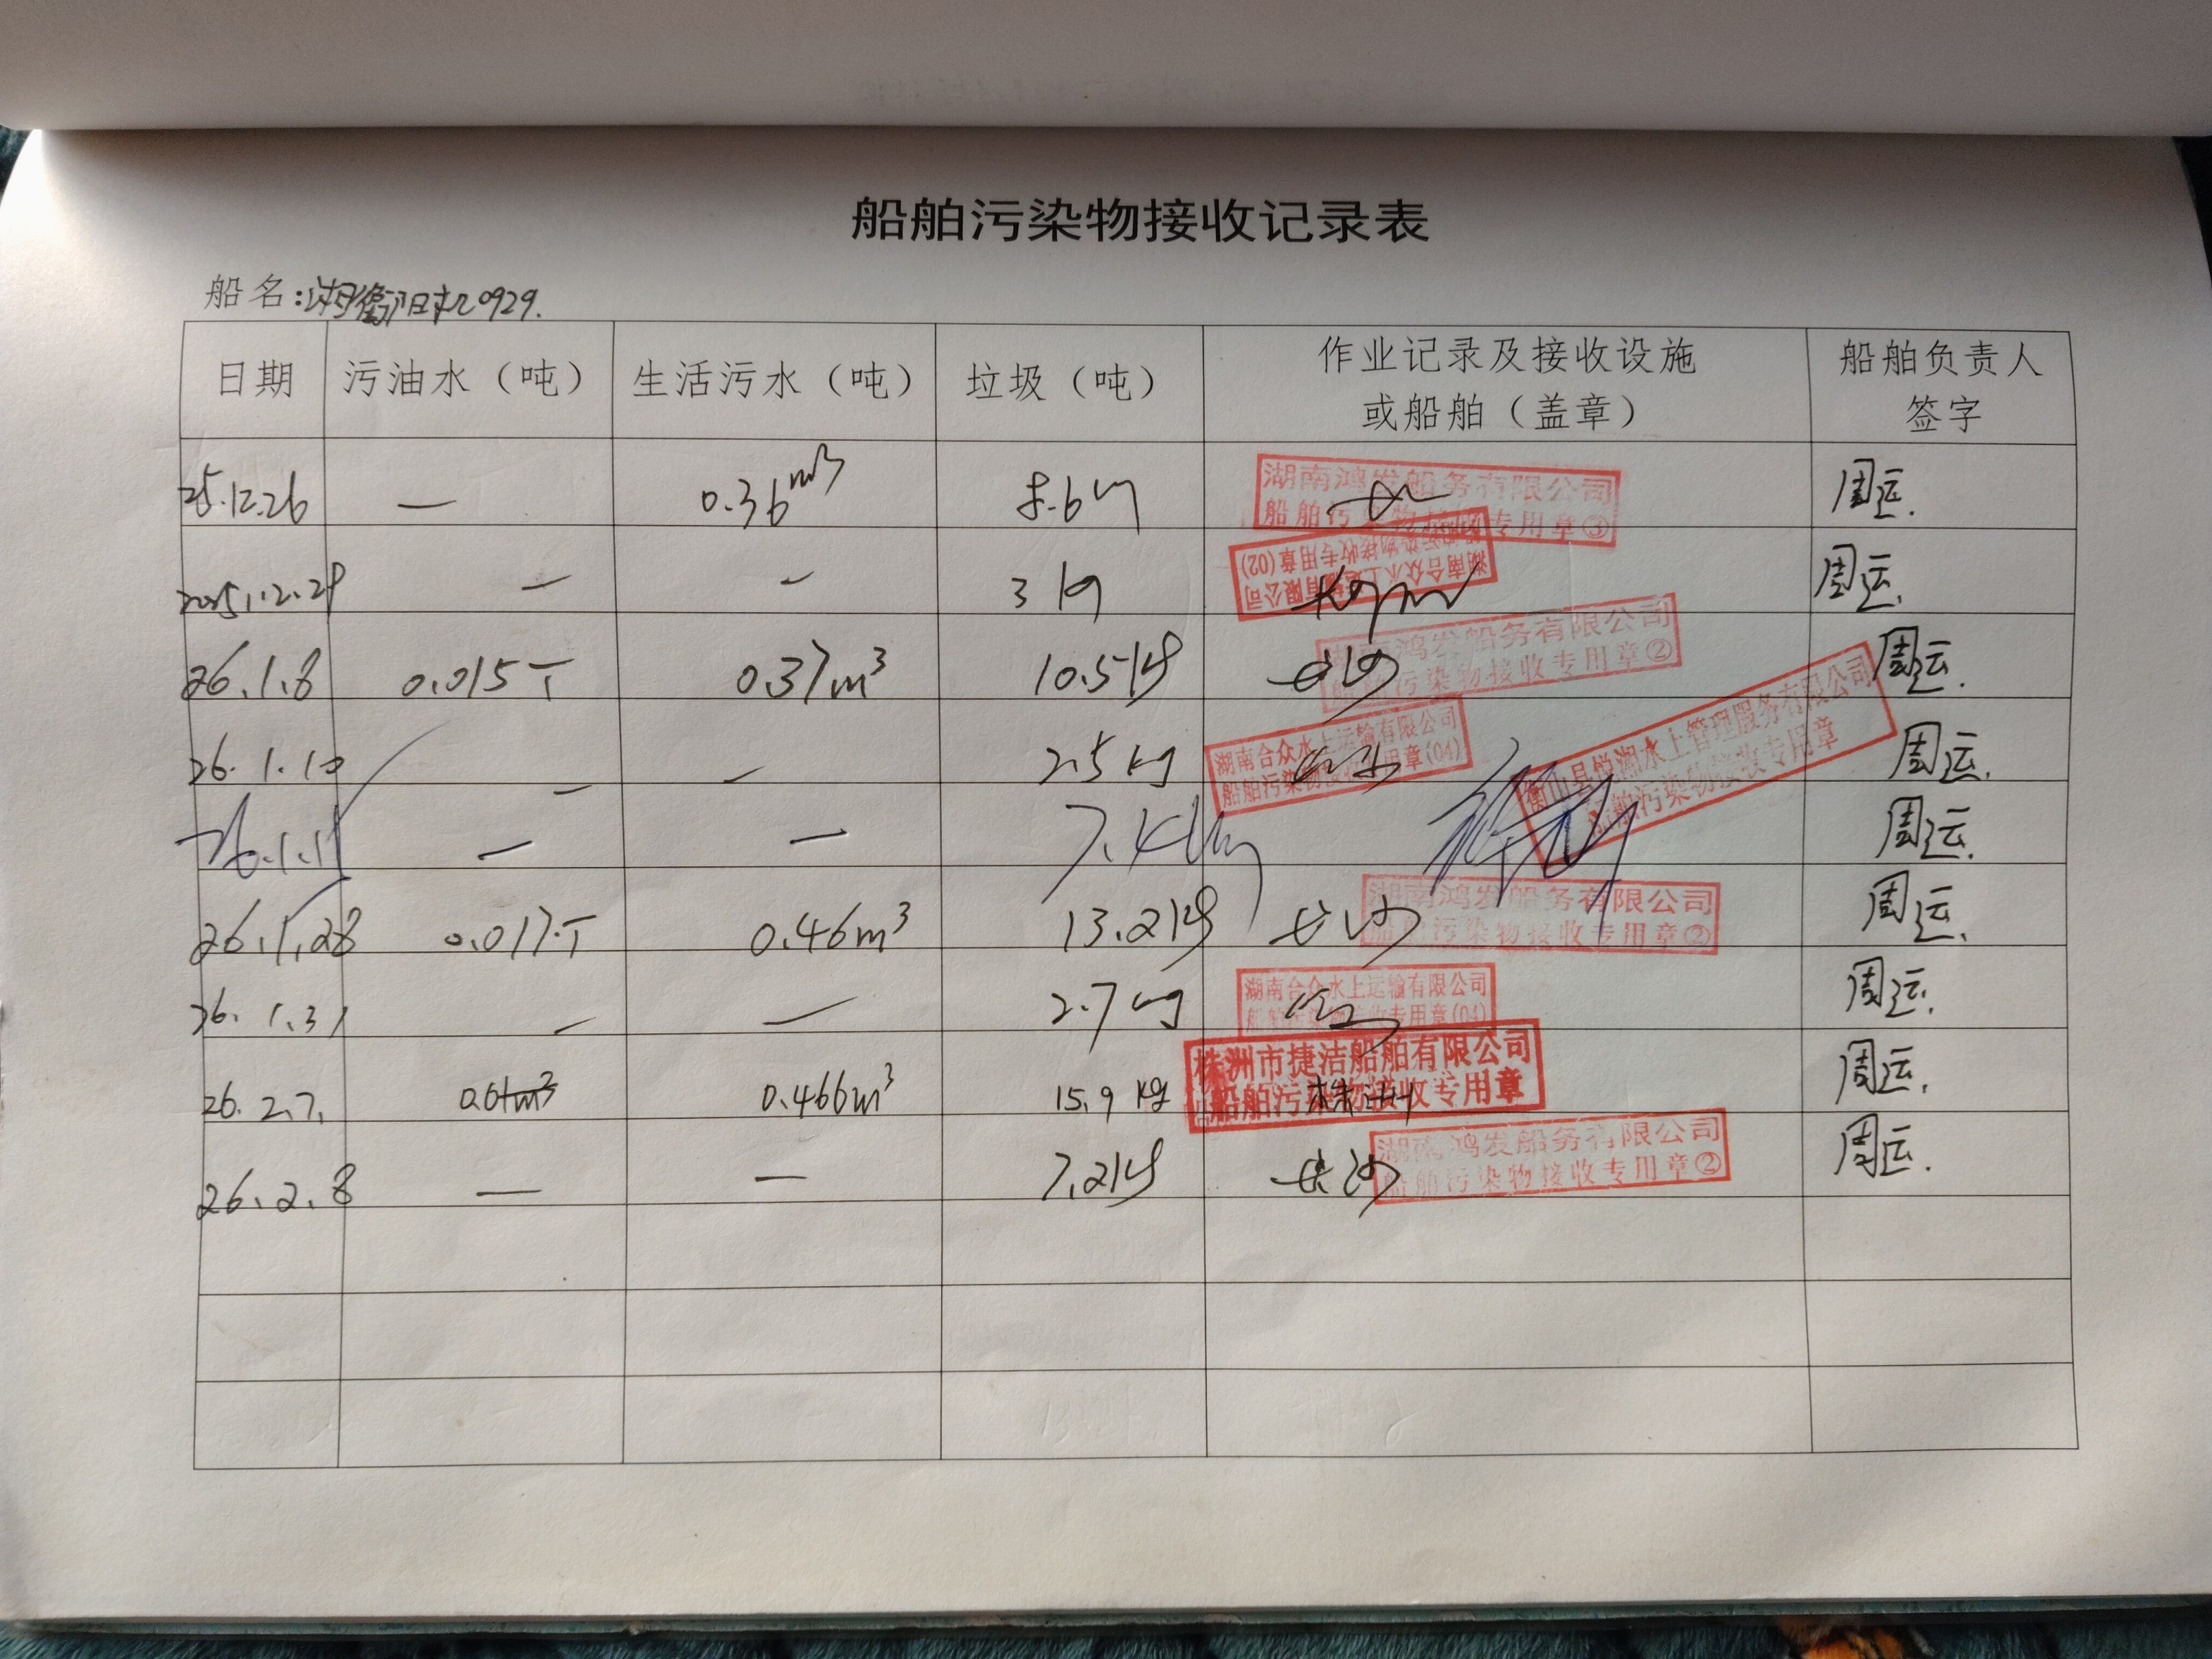 船舶污染物接收记录表
船名:湘衡阳机0929.
日期 污油水（吨） 生活污水（吨） 垃圾（吨） 作业记录及接收设施或船舶（盖章） 船舶负责人签字
25.12.26 — 0.36m³ 8.6 湖南鸿发船务有限公司 船舶污染物接收专用章③ 周运.
2025.12.29 — — 3 kg 湖南合众水上运输有限公司 船舶污染物接收专用章(02) 周运.
26.1.8 0.015T 0.37m³ 10.5kg 长沙 湖南鸿发船务有限公司 船舶污染物接收专用章② 周运.
26.1.10 — — 2.5kg 湖南合众水上运输有限公司 船舶污染物接收专用章(04) 周运.
26.1.11 — — 7.4kg 衡山县悦湘水上管理服务有限公司 船舶污染物接收专用章 周运.
26.1.28 0.017T 0.46m³ 13.2kg 长沙 湖南鸿发船务有限公司 船舶污染物接收专用章② 周运.
26.1.31 — — 2.7kg 湖南合众水上运输有限公司 船舶污染物接收专用章(04) 周运.
26.2.7. 0.01m³ 0.466m³ 15.9kg 株洲 株洲市捷洁船舶有限公司 船舶污染物接收专用章 周运.
26.2.8 — — 7.2kg 长沙 湖南鸿发船务有限公司 船舶污染物接收专用章② 周运.